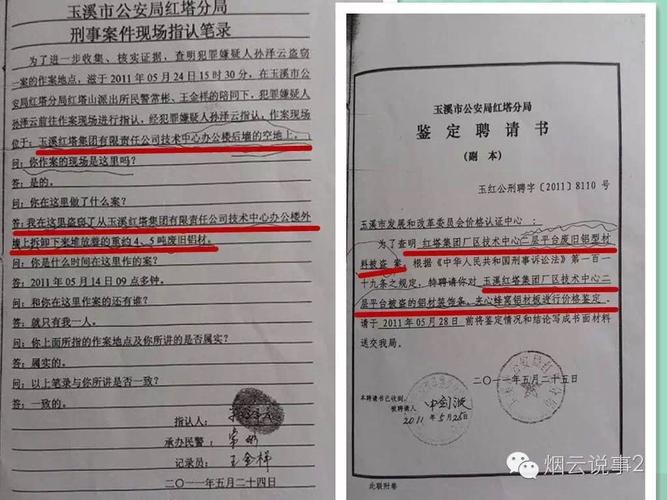 玉溪市公安局红塔分局
刑事案件现场指认笔录
为了进一步收集、核实证据,查明犯罪嫌疑人孙泽云盗窃
一案的作案地点,兹于 2011 年 05 月 24 日 15 时 30 分,在玉溪市公
安局红塔分局红塔山派出所民警常彬、王金祥的陪同下,犯罪嫌疑人
孙泽云前往作案现场进行指认,经犯罪嫌疑人孙泽云指认,作案现场
位于:玉溪红塔集团有限责任公司技术中心办公楼后墙的空地上。
问:你作案的现场是这里吗?
答:是的。
问:你在这里做了什么案?
答:我在这里盗窃了从玉溪红塔集团有限责任公司技术中心办公楼外
墙上拆卸下来堆放着的重约 4、5 吨废旧铝材。
问:你是什么时间在这里作的案?
答:2011 年 05 月 14 日 09 点多钟。
问:和你在这里作案的还有谁?
答:就只有我一人。
问:你上面所指的作案地点及你所讲的是否属实?
答:属实的。
问:以上笔录与你所讲是否一致?
答:一致的。
指认人:
承办民警:常彬
记录员:王金祥
二〇一一年五月二十四日
玉溪市公安局红塔分局
鉴定聘请书
(副 本)
玉红公刑聘字〔2011〕8110 号
玉溪市发展和改革委员会价格认证中心 :
为了查明 红塔集团厂区技术中心二层平台废旧铝型材
料被盗 案,根据《中华人民共和国刑事诉讼法》第一百一
十九条之规定,特聘请你对 玉溪红塔集团厂区技术中心二
层平台被盗的铝材装饰条、夹心蜂窝铝材板进行价格鉴定 。
请于 2011 年 05 月 28 日 前将鉴定情况和结论写成书面材料
送交我局。
二〇一一年五月二十五日
本聘请书已收到。
被聘请人
2011 年 5 月 25 日
此联附卷
烟云说事2